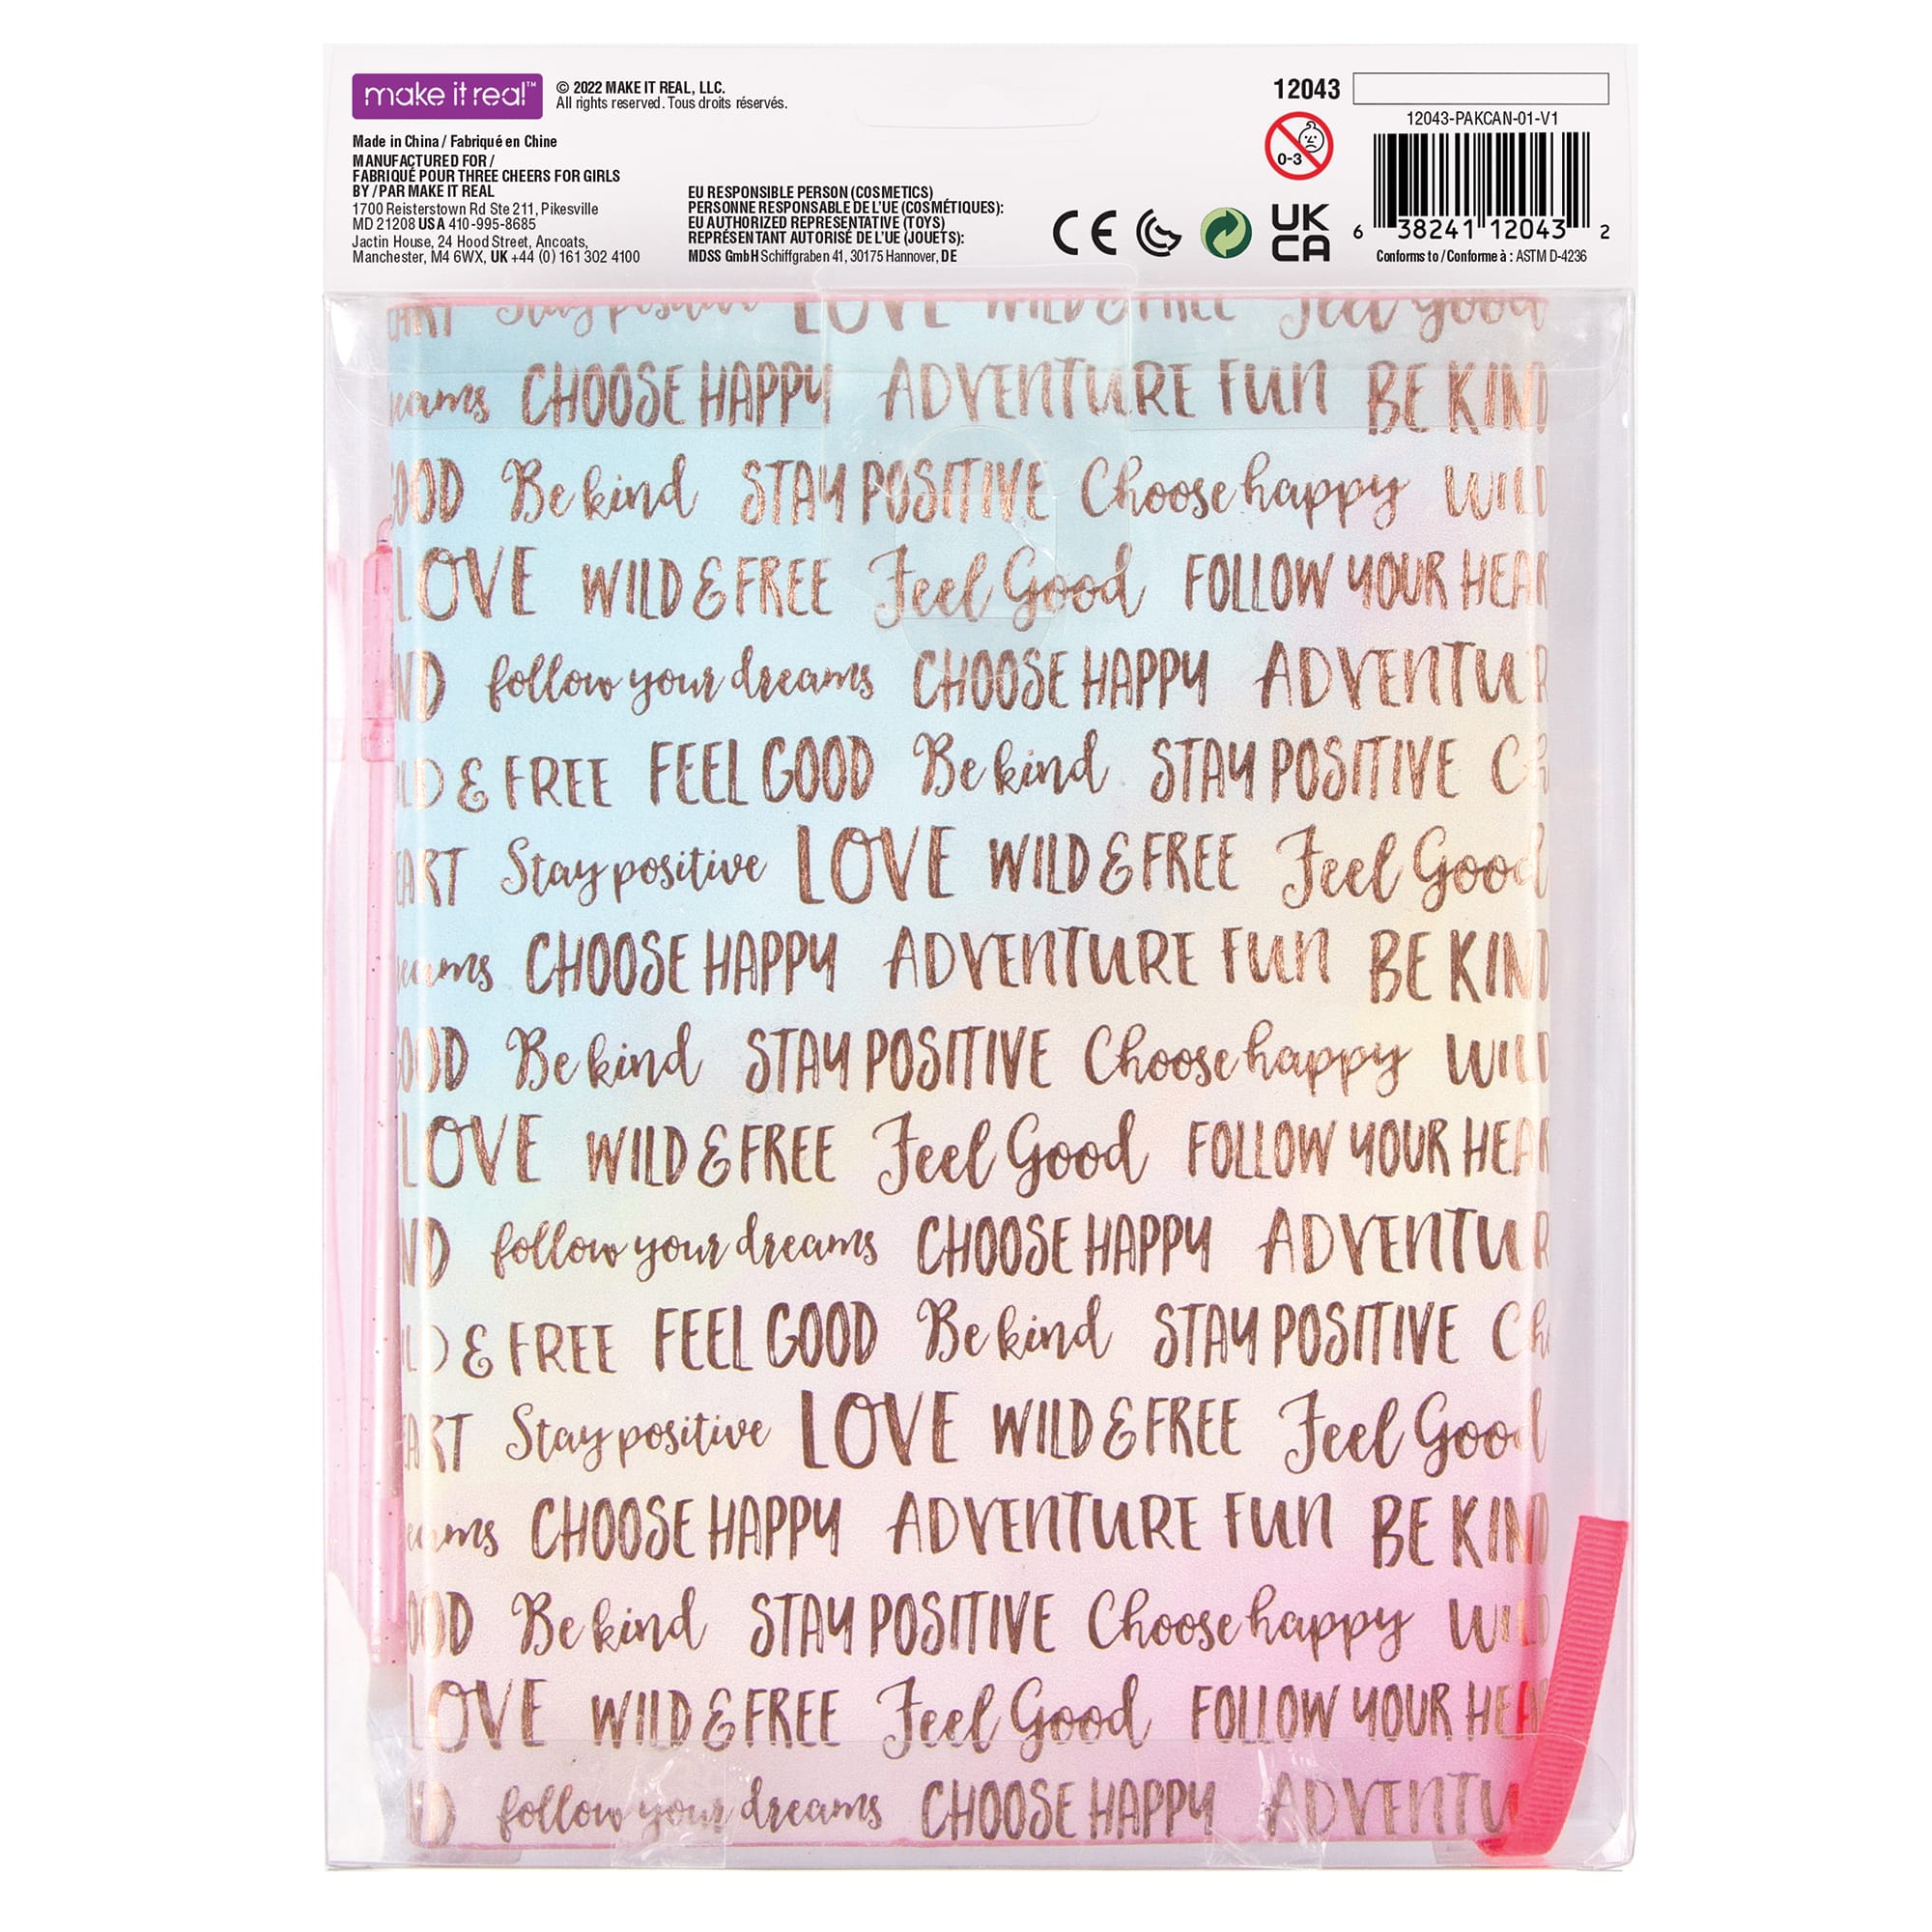 make it real™
© 2022 MAKE IT REAL, LLC.
All rights reserved. Tous droits réservés.
Made in China / Fabriqué en Chine
MANUFACTURED FOR /
FABRIQUÉ POUR THREE CHEERS FOR GIRLS
BY / PAR MAKE IT REAL
1700 Reisterstown Rd Ste 211, Pikesville
MD 21208 USA 410-995-8685
Jactin House, 24 Hood Street, Ancoats,
Manchester, M4 6WX, UK +44 (0) 161 302 4100
EU RESPONSIBLE PERSON (COSMETICS)
PERSONNE RESPONSABLE DE L'UE (COSMÉTIQUES):
EU AUTHORIZED REPRESENTATIVE (TOYS)
REPRÉSENTANT AUTORISÉ DE L'UE (JOUETS):
MDSS GmbH Schiffgraben 41, 30175 Hannover, DE
CE
UK
CA
12043
0-3
12043-PAKCAN-01-V1
6 38241 12043 2
Conforms to / Conforme à : ASTM D-4236
ART Stay positive LOVE WILD & FREE Feel Good
eams CHOOSE HAPPY ADVENTURE FUN BE KIND
OOD Be kind STAY POSITIVE Choose happy WILD
LOVE WILD & FREE Feel Good FOLLOW YOUR HEAR
ND follow your dreams CHOOSE HAPPY ADVENTUR
LD & FREE FEEL GOOD Be kind STAY POSITIVE Ch
EART Stay positive LOVE WILD & FREE Feel Good
eams CHOOSE HAPPY ADVENTURE FUN BE KIND
OOD Be kind STAY POSITIVE Choose happy WILD
LOVE WILD & FREE Feel Good FOLLOW YOUR HEAR
ND follow your dreams CHOOSE HAPPY ADVENTUR
LD & FREE FEEL GOOD Be kind STAY POSITIVE Ch
EART Stay positive LOVE WILD & FREE Feel Good
eams CHOOSE HAPPY ADVENTURE FUN BE KIND
OOD Be kind STAY POSITIVE Choose happy WILD
LOVE WILD & FREE Feel Good FOLLOW YOUR HEA
ND follow your dreams CHOOSE HAPPY ADVENTU